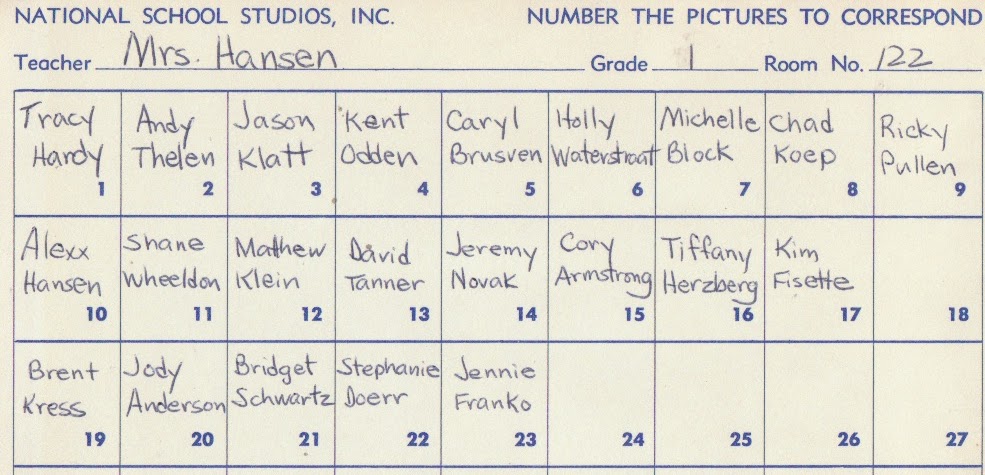 NATIONAL SCHOOL STUDIOS, INC. NUMBER THE PICTURES TO CORRESPOND
Teacher Mrs. Hansen Grade 1 Room No. 122
Tracy Hardy 1
Andy Thelen 2
Jason Klatt 3
Kent Odden 4
Caryl Brusven 5
Holly Waterstraat 6
Michelle Block 7
Chad Koep 8
Ricky Pullen 9
Alexx Hansen 10
Shane Wheeldon 11
Mathew Klein 12
David Tanner 13
Jeremy Novak 14
Cory Armstrong 15
Tiffany Herzberg 16
Kim Fisette 17
18
Brent Kress 19
Jody Anderson 20
Bridget Schwartz 21
Stephanie Doerr 22
Jennie Franko 23
24
25
26
27